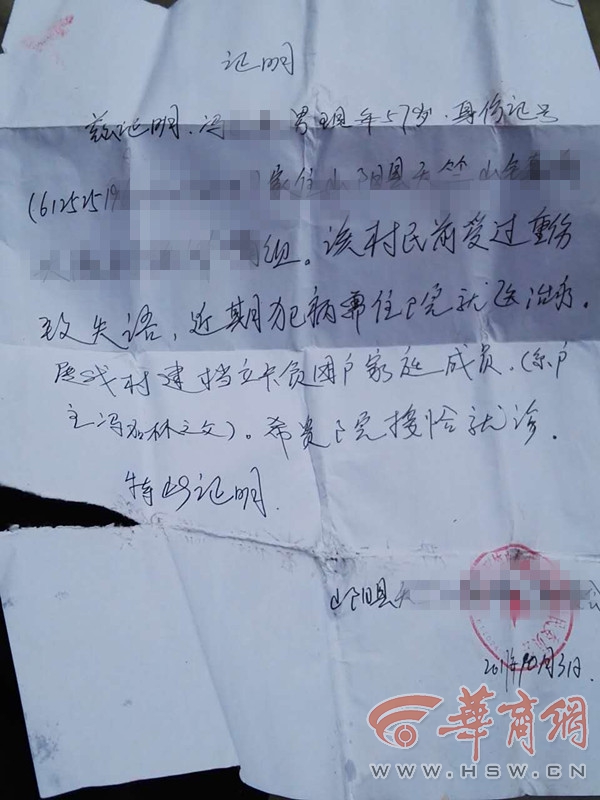 证明
兹证明.冯 男现年57岁.身份证号
(61252519 家住山阳县天竺山
组。该村民前受过重伤
致失语，近期犯病需住院就医治疗.
属我村建档立卡贫困户家庭成员.(系户
主冯 林之父)。希贵院接恰就诊.
特此证明
山阳县天
月31日.
华商網
WWW.HSW.CN